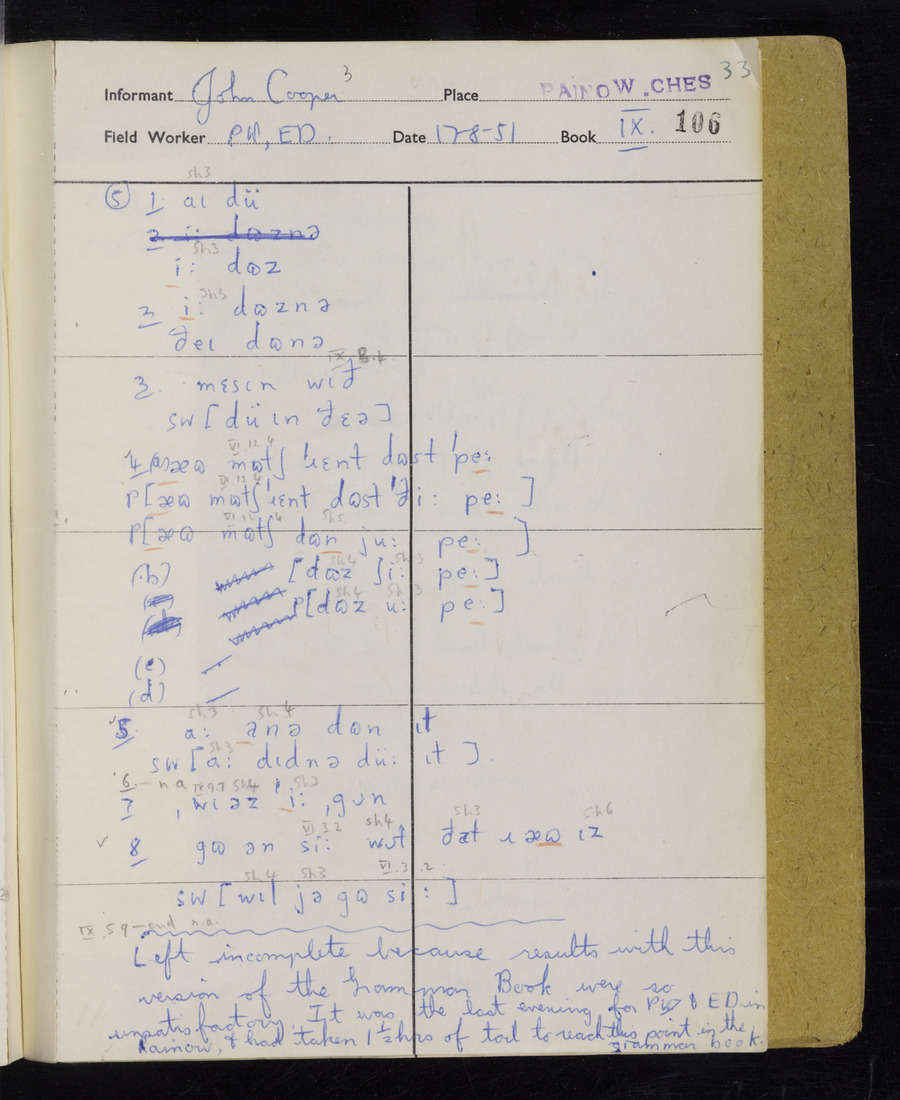 33
Informant John Cooper 3 Place RAINOW .CHES
Field Worker PW, ED. Date 17-8-51 Book IX. 106
sh3
⑤ 1. aɩ dü
2 i: dɷznə
sh3
i: dɷz
sh3
2 i: dɷznə
ðeɩ dɷnə
IX 8.4
3. mɛsɩn wɩð
SW [dü ɩn ðɛə]
VI.12.4
4 (a) æɷ mɷtʃ ˈɹɛnt dɷst ˈpe:
VI.12.4
P[æɷ mɷtʃ ˈɹɛnt dɷst ˈði: pe: ]
VI.12.4 sh5
P[æɷ mɷtʃ dɷn ju: pe: ]
sh4 sh3
(b) [dɷz ʃi: pe:]
sh4 sh3
P[dɷz u: pe:]
(c)
(d)
sh3 sh4
5. a: anə dɷn ɩt
sh3
SW [a: dɩdnə dü: ɩt ].
6.- n.a IX 9.7 sh4 sh3
7 ˌwɩəz ˈi: ˌgʊn
VI.3.2 sh4 sh3 sh6
8 gɷ ən si: wɷt ðat ɹæɷ ɩz
sh4 sh3 VI.3.2
SW [wɩl jə gɷ si: ]
IX.5 9-end n.a.
Left incomplete because results with this
version of the Grammar Book were so
unsatisfactory. It was the last evening for PW & ED in
Rainow, & had taken 1½ hrs of toil to reach this point in the
grammar book.